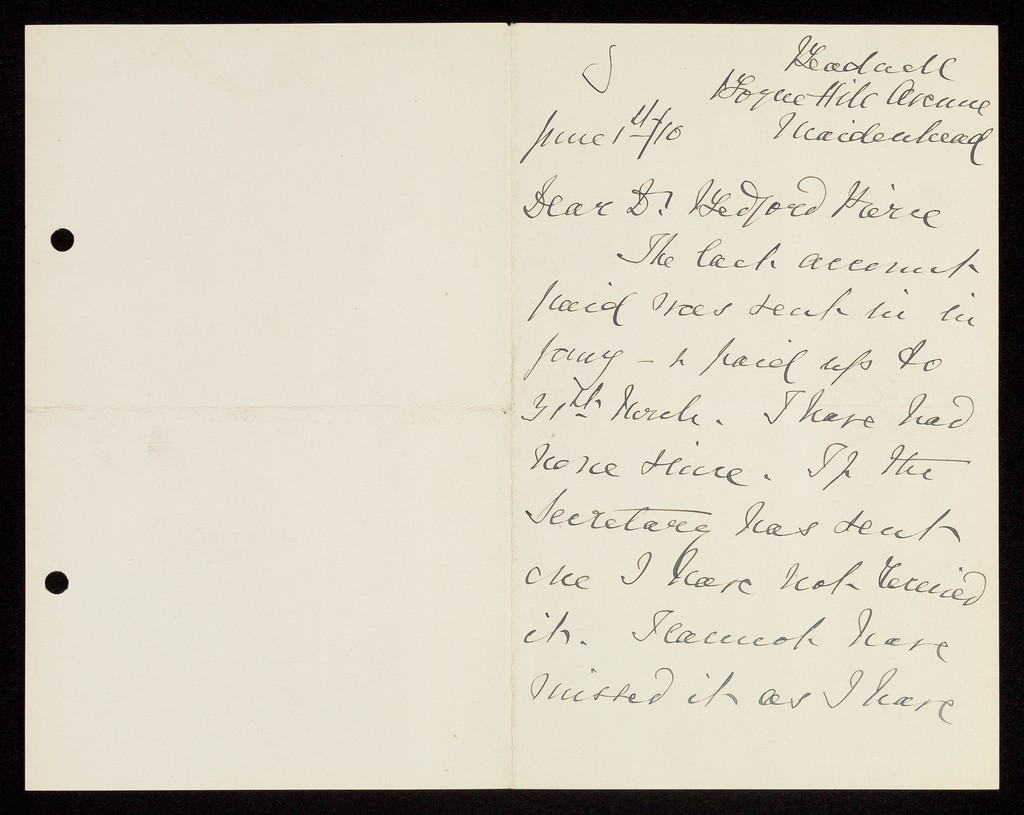 Boyne Hill Avenue
Maidenhead
June 1st/10
Dear Dr. Bedford Pierce
The last account
paid was sent in in
Jany - & paid up to
31st March. I have had
none since. If the
Secretary has sent
one I have not received
it. I cannot have
missed it as I have